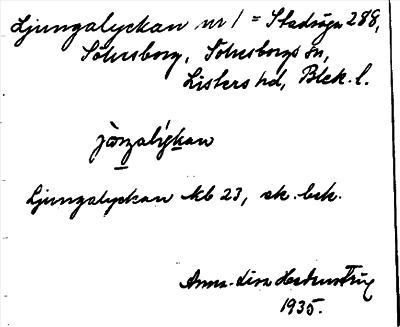 Ljungalyckan nr 1 = Stadsäga 288,
Sölvesborg, Sölvesborgs sn,
Listers hd, Blek. l.
Ljungalyckan kb 23, ek. bek.
Anna-Lisa Hedenström
1935.